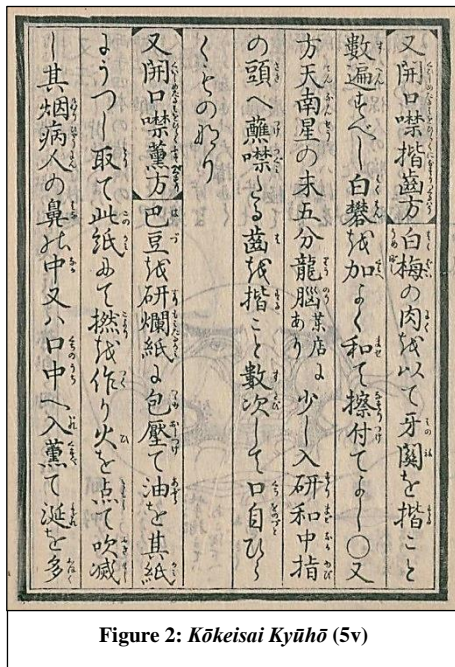 又開口噤揩齒方 白梅の肉を以て牙關を揩こと
數遍すべし白礬を加よく和て擦付てよし〇又
方天南星の末五分龍腦薬店にあり少し入研和中指
の頭へ蘸噤たる齒を揩こと數次して口自ひら
くものなり
又開口噤薫方 巴豆を研爛紙に包壓て油を其紙
にうつし取て此紙にて撚を作り火を点て吹滅
し其烟病人の鼻の中又ハ口中へ入薫て涎を多
Figure 2: Kōkeisai Kyūhō (5v)